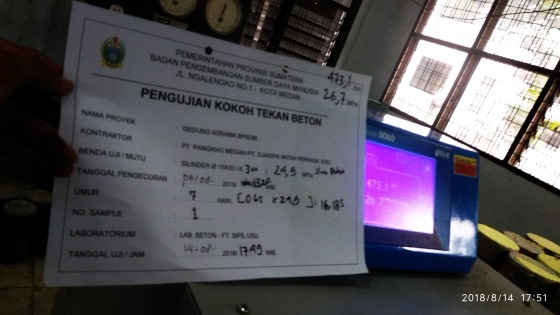 PEMERINTAHAN PROVINSI SUMATERA
BADAN PENGEMBANGAN SUMBER DAYA MANUSIA
JL. NGALENGKO NO.1 - KOTA MEDAN
473,1 KN
26,7 MPa
PENGUJIAN KOKOH TEKAN BETON
NAMA PROYEK : GEDUNG ASRAMA BPSDM
KONTRAKTOR : PT. PANGRHO MEGAH-PT. DJASIPA MITRA PERKASA, KSO
BENDA UJI / MUTU : SILINDER Ø 15X30 / K 300 : 24,9 MPa
TANGGAL PENGECORAN : 2018/ WIB
UMUR : 7 HARI (0.65 x 24,9
NO. SAMPLE : 1
LABORATORIUM : LAB. BETON - FT. SIPIL USU
TANGGAL UJI/JAM : 14-08- 2018/ 1749 WIB
SOLO
473.1
26.7
2018/8/14 17:51